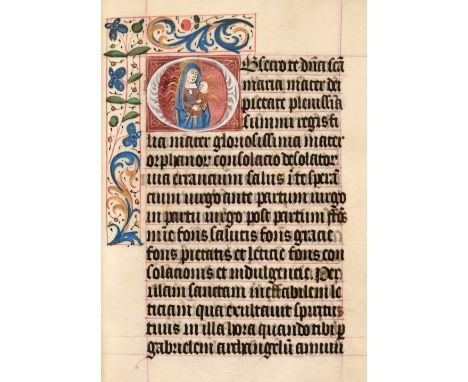 Obsecro te dña scã
maria mater dei
pietate plenissiã
summi regis fi
lia mater gloriosissima mater
orphanor consolacio desolator
via errancium salus ĩ te sperã
cium virgo ante partum virgo
in partu virgo post partum fõs
mie fons salutis fons gracie
fons pietatis et leticie fons con
solacionis et indulgencie. Per
illam sanctam ineffabilem le
ticiam qua exultauit spiritus
tuus in illa hora quando tibi p
gabrielem archangelũ annuu